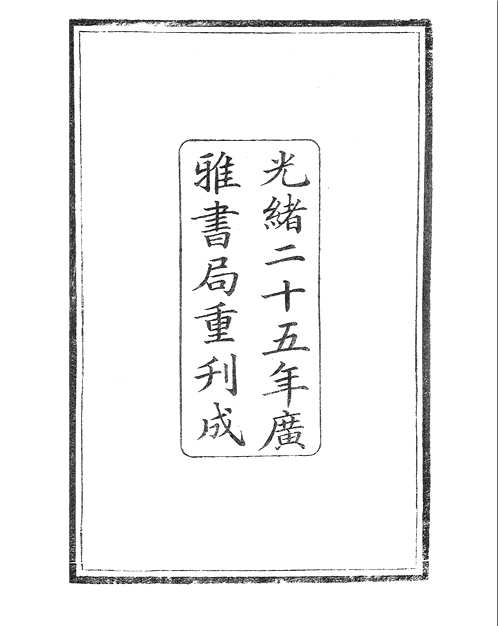 光緒二十五年廣
雅書局重刋成